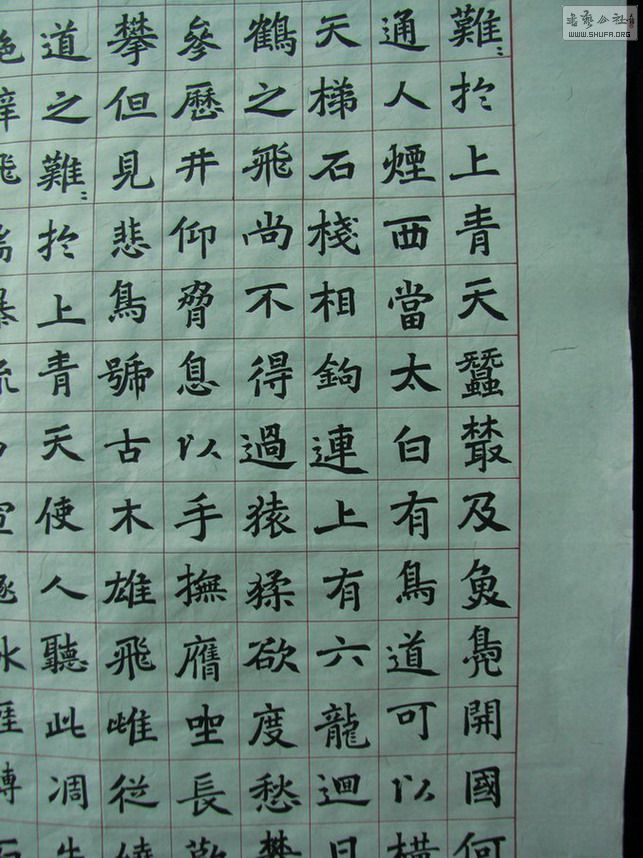 難〻於上青天蠶叢及魚鳧開國何
通人煙西當太白有鳥道可以橫
天梯石棧相鉤連上有六龍迴日
鶴之飛尚不得過猿猱欲度愁攀
參歷井仰脅息以手撫膺坐長歎
攀但見悲鳥號古木雄飛雌從繞
道之難〻於上青天使人聽此凋朱
書藝公社
WWW.SHUFA.ORG